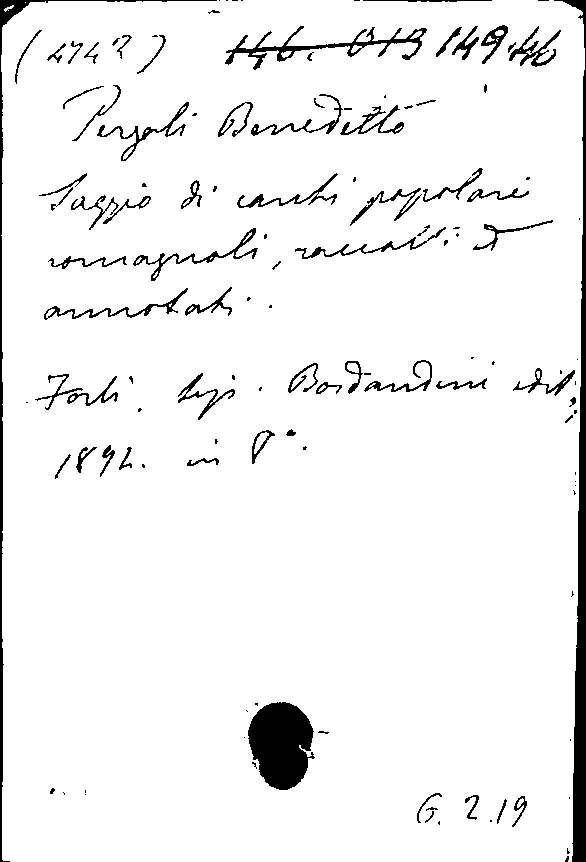 (4742) 146. 013 149.46
Pergoli Benedetto
Saggio di canti popolari
romagnoli, raccolti ed
annotati.
Forlì. tip. Bordandini edit.
1892. in 8°.
G. 2.19